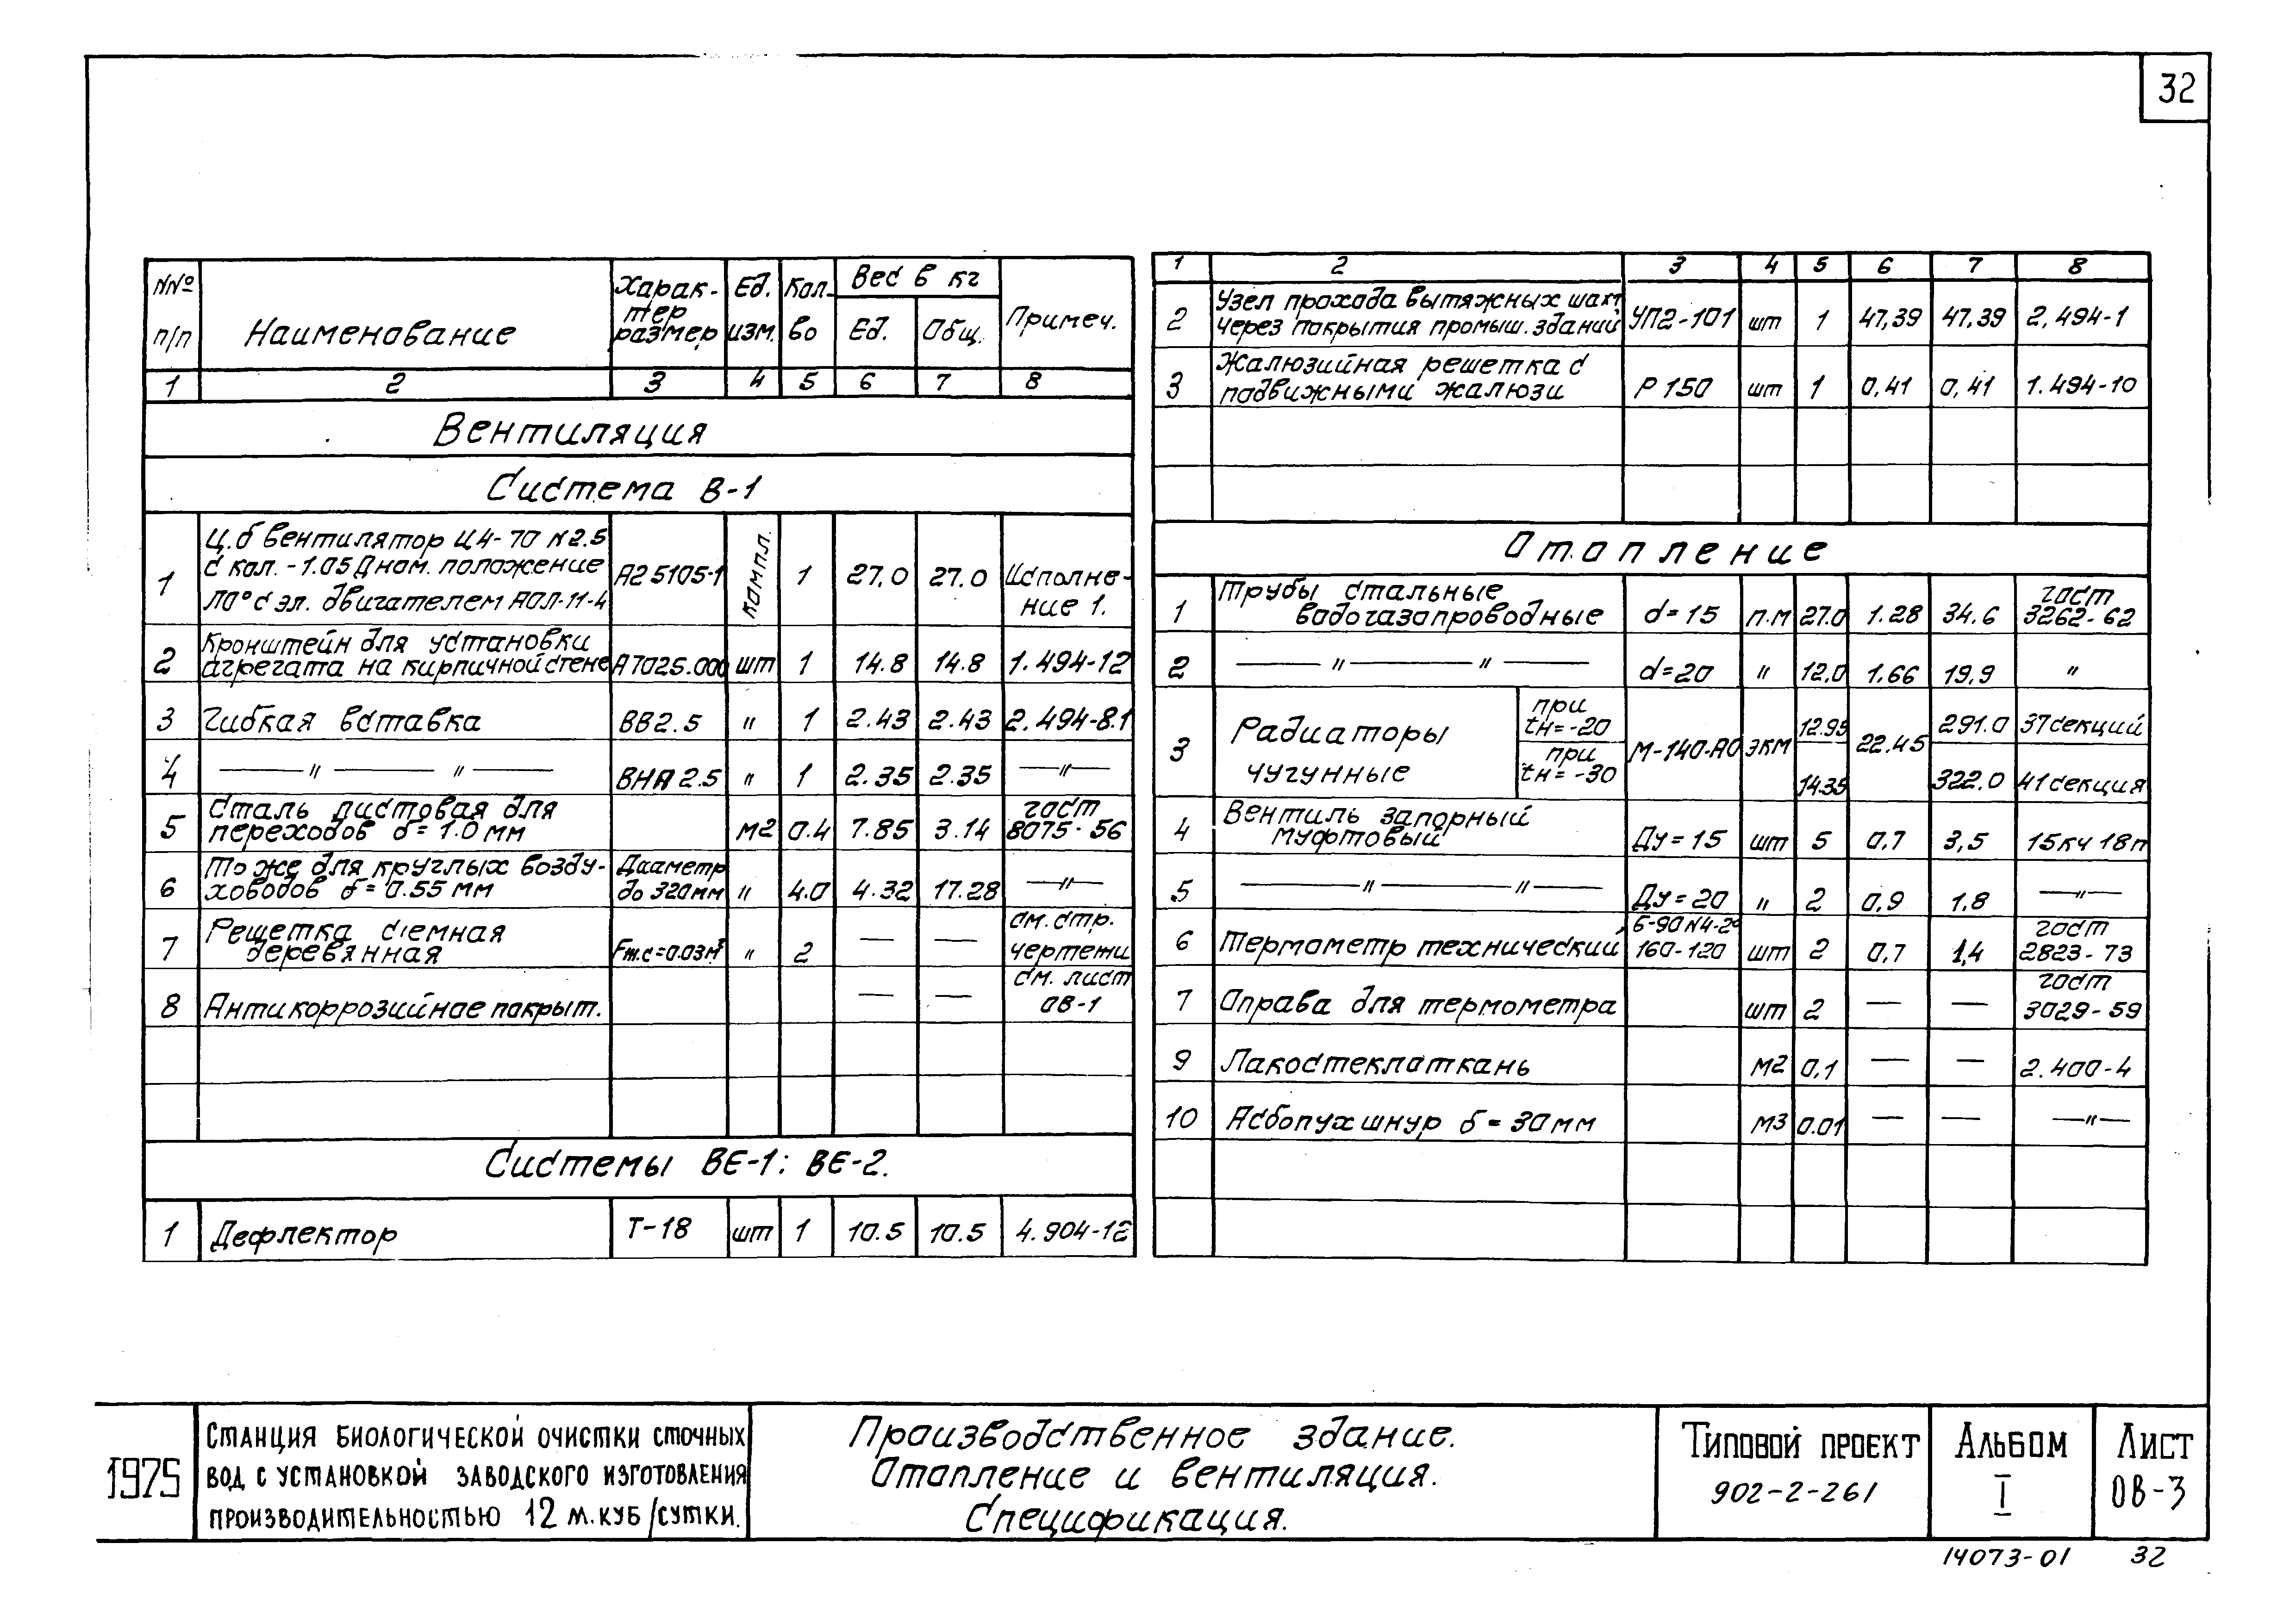 32
NNº п/п Наименование Харак-тер размер Ед. изм. Кол-во Вес в кг Ед. Общ. Примеч.
1 2 3 4 5 6 7 8
Вентиляция
Система В-1
1 Ц.б вентилятор Ц4-70 N2.5 А2 5105-1 компл. 1 27.0 27.0 Исполне-
с кол. - 1.05 Дном. положение
Л0° с эл. двигателем АОЛ-11-4 ние 1.
2 Кронштейн для установки
агрегата на кирпичной стене А7025.000 шт 1 14.8 14.8 1.494-12
3 Гибкая вставка ВВ2.5 " 1 2.43 2.43 2.494-8.1
4 — " — " — ВНА 2.5 " 1 2.35 2.35 — " —
5 Сталь листовая для гост
переходов δ = 1.0 мм м2 0.4 7.85 3.14 8075-56
6 То же для круглых возду- Диаметр
ховодов δ = 0.55 мм до 320мм " 4.0 4.32 17.28 — " —
7 Решетка с'емная см. стр.
деревянная Fж.с=0.03м² " 2 — — чертежи
8 Антикоррозийное покрыт. — — см. лист
ОВ-1
Системы ВЕ-1: ВЕ-2.
1 Дефлектор Т-18 шт 1 10.5 10.5 4.904-12
1 2 3 4 5 6 7 8
2 Узел прохода вытяжных шахт
через покрытия промыш. зданий УП2-101 шт 1 47,39 47.39 2.494-1
3 Жалюзийная решетка с
подвижными жалюзи Р 150 шт 1 0,41 0,41 1.494-10
Отопление
1 Трубы стальные гост
водогазопроводные d=15 п.м 27.0 1.28 34.6 3262-62
2 — " — " — d=20 " 12.0 1.66 19.9 "
3 Радиаторы при tн=-20 М-140-АО экм 12.95 22.45 291.0 37секций
чугунные при tн=-30 14.35 322.0 41секция
4 Вентиль запорный
муфтовый Ду=15 шт 5 0,7 3,5 15кч 18п
5 — " — " — Ду=20 " 2 0,9 1,8 — " —
6 Термометр технический 160-120 шт 2 0,7 1,4 гост
2823-73
7 Оправа для термометра шт 2 — — гост
3029-59
9 Лакостеклоткань м2 0,1 — — 2.400-4
10 Асбопухшнур δ = 30мм м3 0.01 — — — " —
1975
Станция биологической очистки сточных
вод с установкой заводского изготовления
производительностью 12 м.куб/сутки.
Производственное здание.
Отопление и вентиляция.
Спецификация.
Типовой проект
902-2-261
Альбом
I
Лист
ОВ-3
14073-01 32